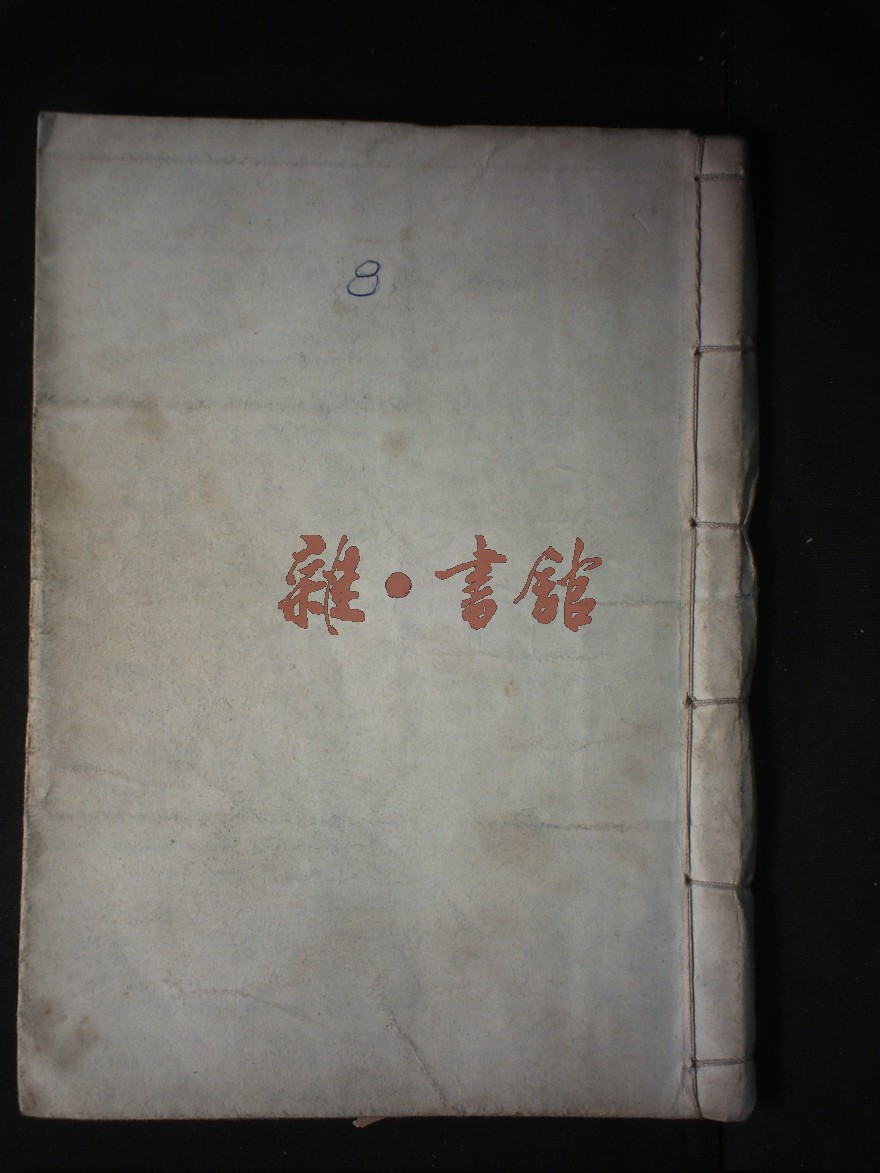 8
雜·書館